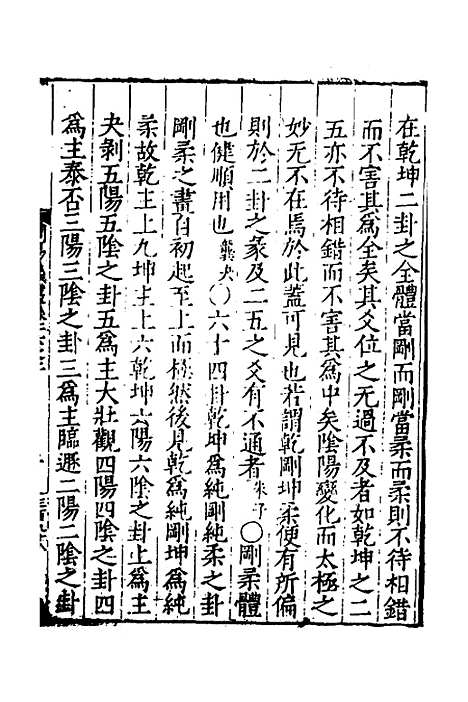 在乾坤二卦之全體當剛而剛當柔而柔則不待相錯
而不害其為全矣其爻位之无過不及者如乾坤之二
五亦不待相錯而不害其為中矣陰陽變化而太極之
妙无不在焉於此蓋可見也若謂乾剛坤柔便有所偏
則於二卦之彖及二五之爻有不通者朱子○剛柔體
也健順用也龔夬○六十四卦乾坤為純剛純柔之卦
剛柔之畫自初起至上而極然後見乾為純剛坤為純
柔故乾主上九坤主上六乾坤六陽六陰之卦上為主
夬剝五陽五陰之卦五為主大壯觀四陽四陰之卦四
為主泰否三陽三陰之卦三為主臨遯二陽二陰之卦